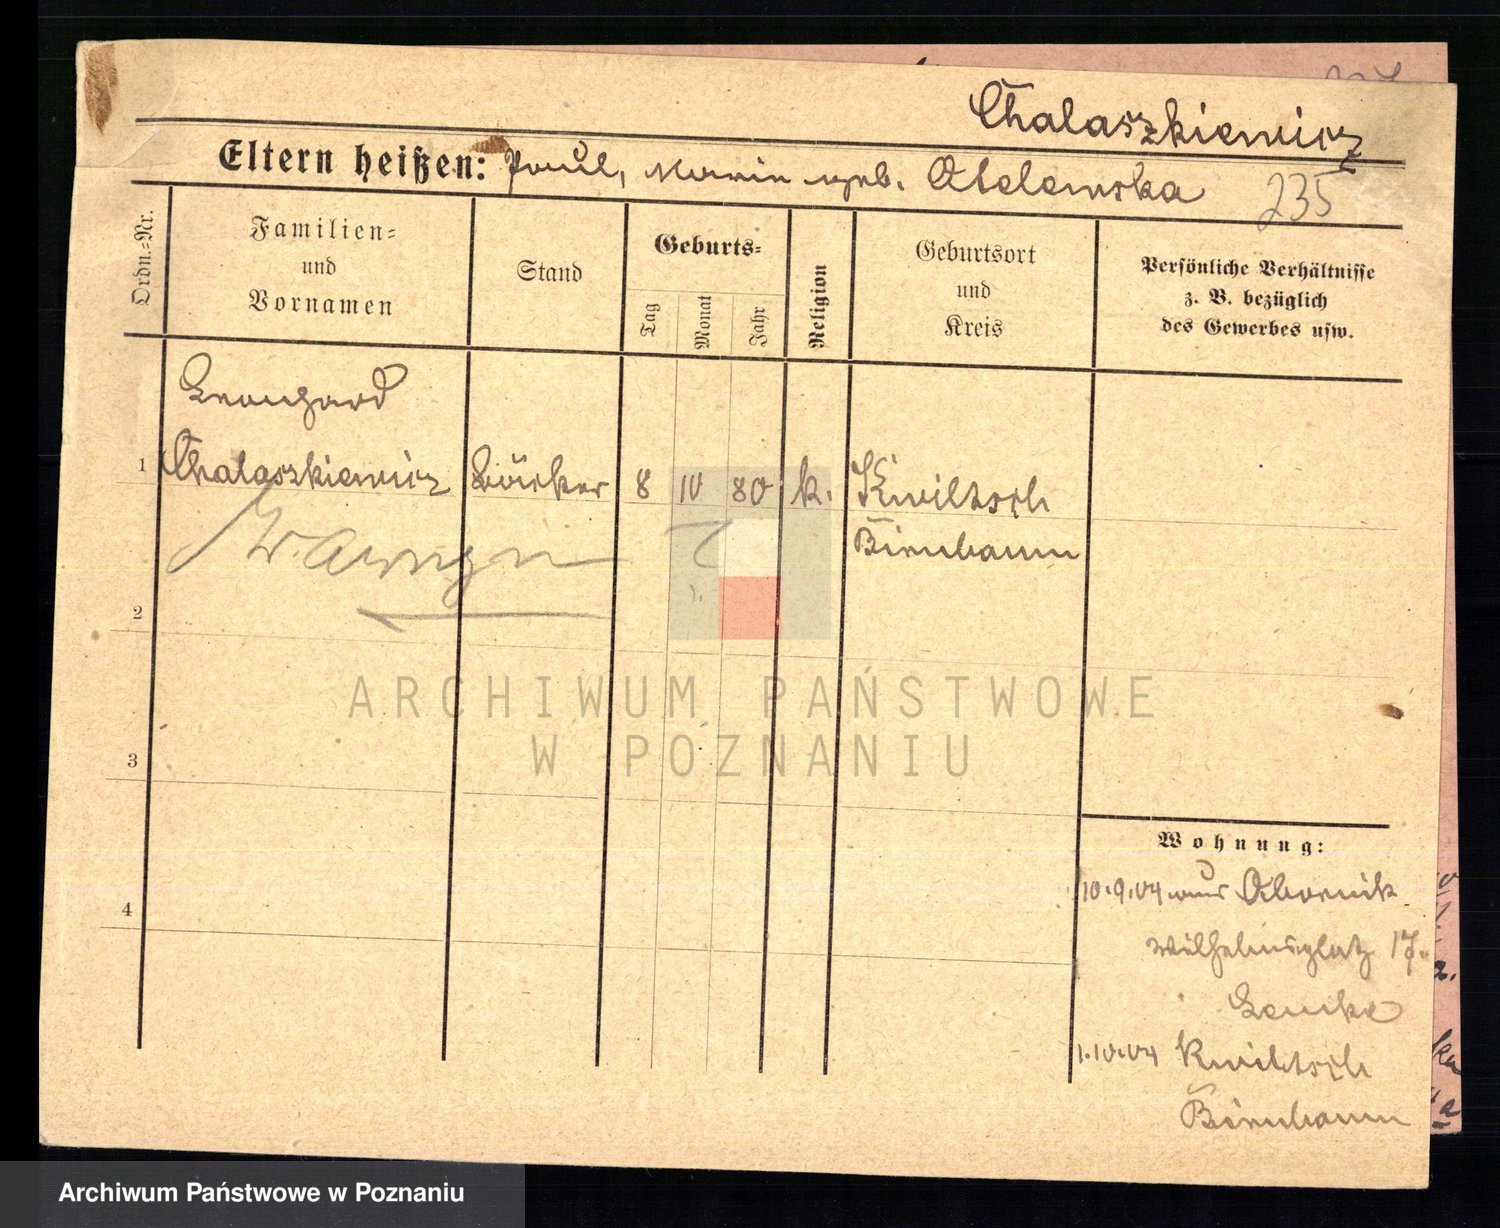 Chalaszkiewicz
Eltern heißen: Paul, Marie geb. Otelewska
235
Ordn.-Nr.
Familien-
und
Vornamen
Stand
Geburts-
Tag
Monat
Jahr
Religion
Geburtsort
und
Kreis
Persönliche Verhältnisse
z. B. bezüglich
des Gewerbes usw.
Leonhard
1 Chalaszkiewicz Bäcker 8 10 80 k. Kwiltsch
Birnbaum
2
3
4
ARCHIWUM PAŃSTWOWE
W POZNANIU
Wohnung:
10.9.04 aus Obornik
Wilhelmsplatz 17
1.10.04 Kwiltsch
Birnbaum
Archiwum Państwowe w Poznaniu